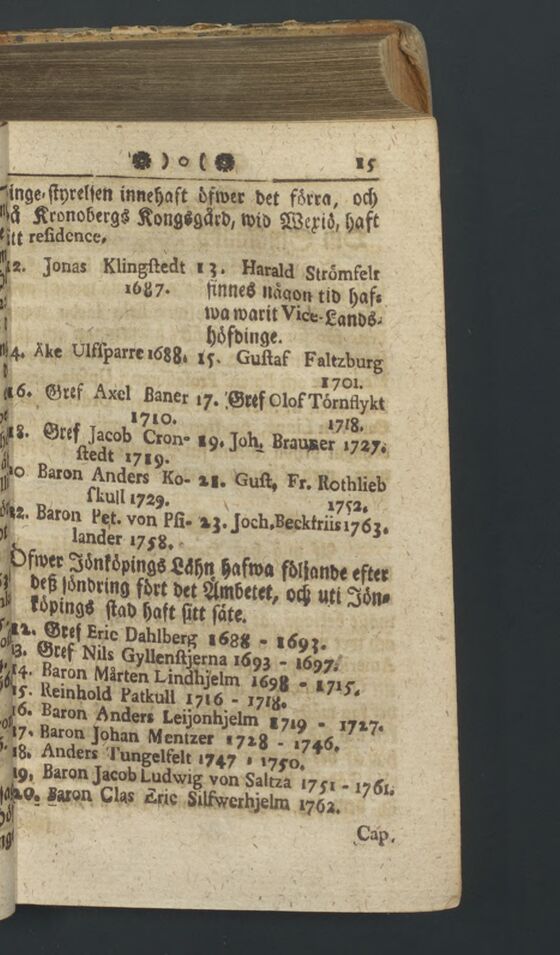 ) o ( 15
inge-styrelsen innehaft öfwer det förra, och
å Kronobergs Kongsgård, wid Wexiö, haft
itt residence.
12. Jonas Klingstedt 1687.
13. Harald Strömfelt
finnes någon tid haf-
wa warit Vice-Lands-
höfdinge.
14. Åke Ulfsparre 1688. 15. Gustaf Faltzburg
1701.
16. Gref Axel Baner 1710.
17. Gref Olof Törnflykt
1718.
18. Gref Jacob Cron-
stedt 1719.
19. Joh. Brauner 1727.
20 Baron Anders Ko-
skull 1729.
21. Gust. Fr. Rothlieb
1752.
22. Baron Pet. von Psi-
lander 1758.
23. Joch. Beckfriis 1763.
Öfwer Jönköpings Lähn hafwa följande efter
deß söndring fört det Ämbetet, och uti Jön-
köpings stad haft sitt säte.
12. Gref Eric Dahlberg 1688 - 1693.
13. Gref Nils Gyllenstjerna 1693 - 1697.
14. Baron Mårten Lindhjelm 1698 - 1715.
15. Reinhold Patkull 1716 - 1718.
16. Baron Anders Leijonhjelm 1719 - 1727.
17. Baron Johan Mentzer 1728 - 1746.
18. Anders Tungelfelt 1747 - 1750.
19. Baron Jacob Ludwig von Saltza 1751 - 1761.
20. Baron Clas Eric Silfwerhjelm 1762.
Cap.